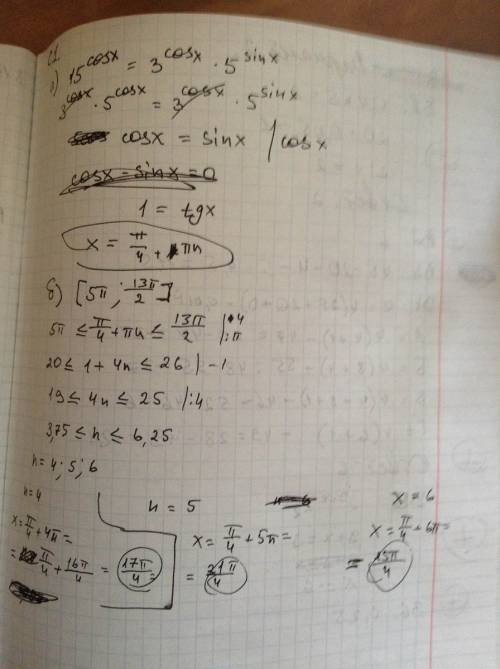 C1.
а) 15^cosx = 3^cosx · 5^sinx
3^cosx · 5^cosx = 3^cosx · 5^sinx
cosx = sinx /cosx
cosx - sinx = 0
1 = tgx
x = π/4 + πn
б) [5π; 13π/2]
5π ≤ π/4 + πn ≤ 13π/2 | ·4 | :π
20 ≤ 1 + 4n ≤ 26 | -1
19 ≤ 4n ≤ 25 | :4
3,75 ≤ n ≤ 6,25
n = 4; 5; 6
n = 4
x = π/4 + 4π =
= π/4 + 16π/4 = 17π/4
n = 5
x = π/4 + 5π =
= 21π/4
x = 6
x = π/4 + 6π =
= 25π/4